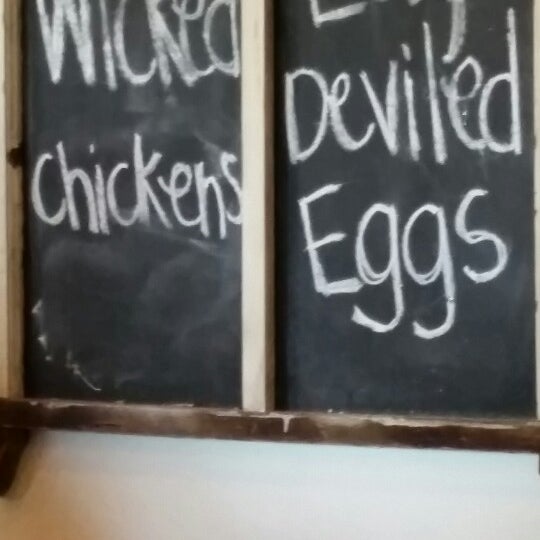 Wicked
Chickens
Lay
Deviled
Eggs